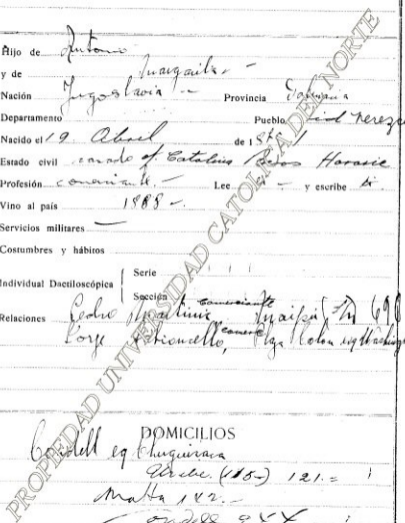 Hijo de Antonio
y de Margarita -
Nación Jugoslavia - Provincia Dalmacia
Departamento Pueblo
Nacido el 19 Abril de 18
Estado civil casado c/ Catalina
Profesión comerciante. - Lee si - y escribe si.
Vino al país 1888 -.
Servicios militares —
Costumbres y hábitos
Individual Dactiloscópica Serie
Sección
Relaciones Pedro Martinic comerciante Maipú
Jorge comerc Plza Colon esq Washing
DOMICILIOS
Condell eq Chuquisaca
Uribe (115-) 121.=
Matta 142.-
Condell 944
PROPIEDAD UNIVERSIDAD CATOLICA DEL NORTE